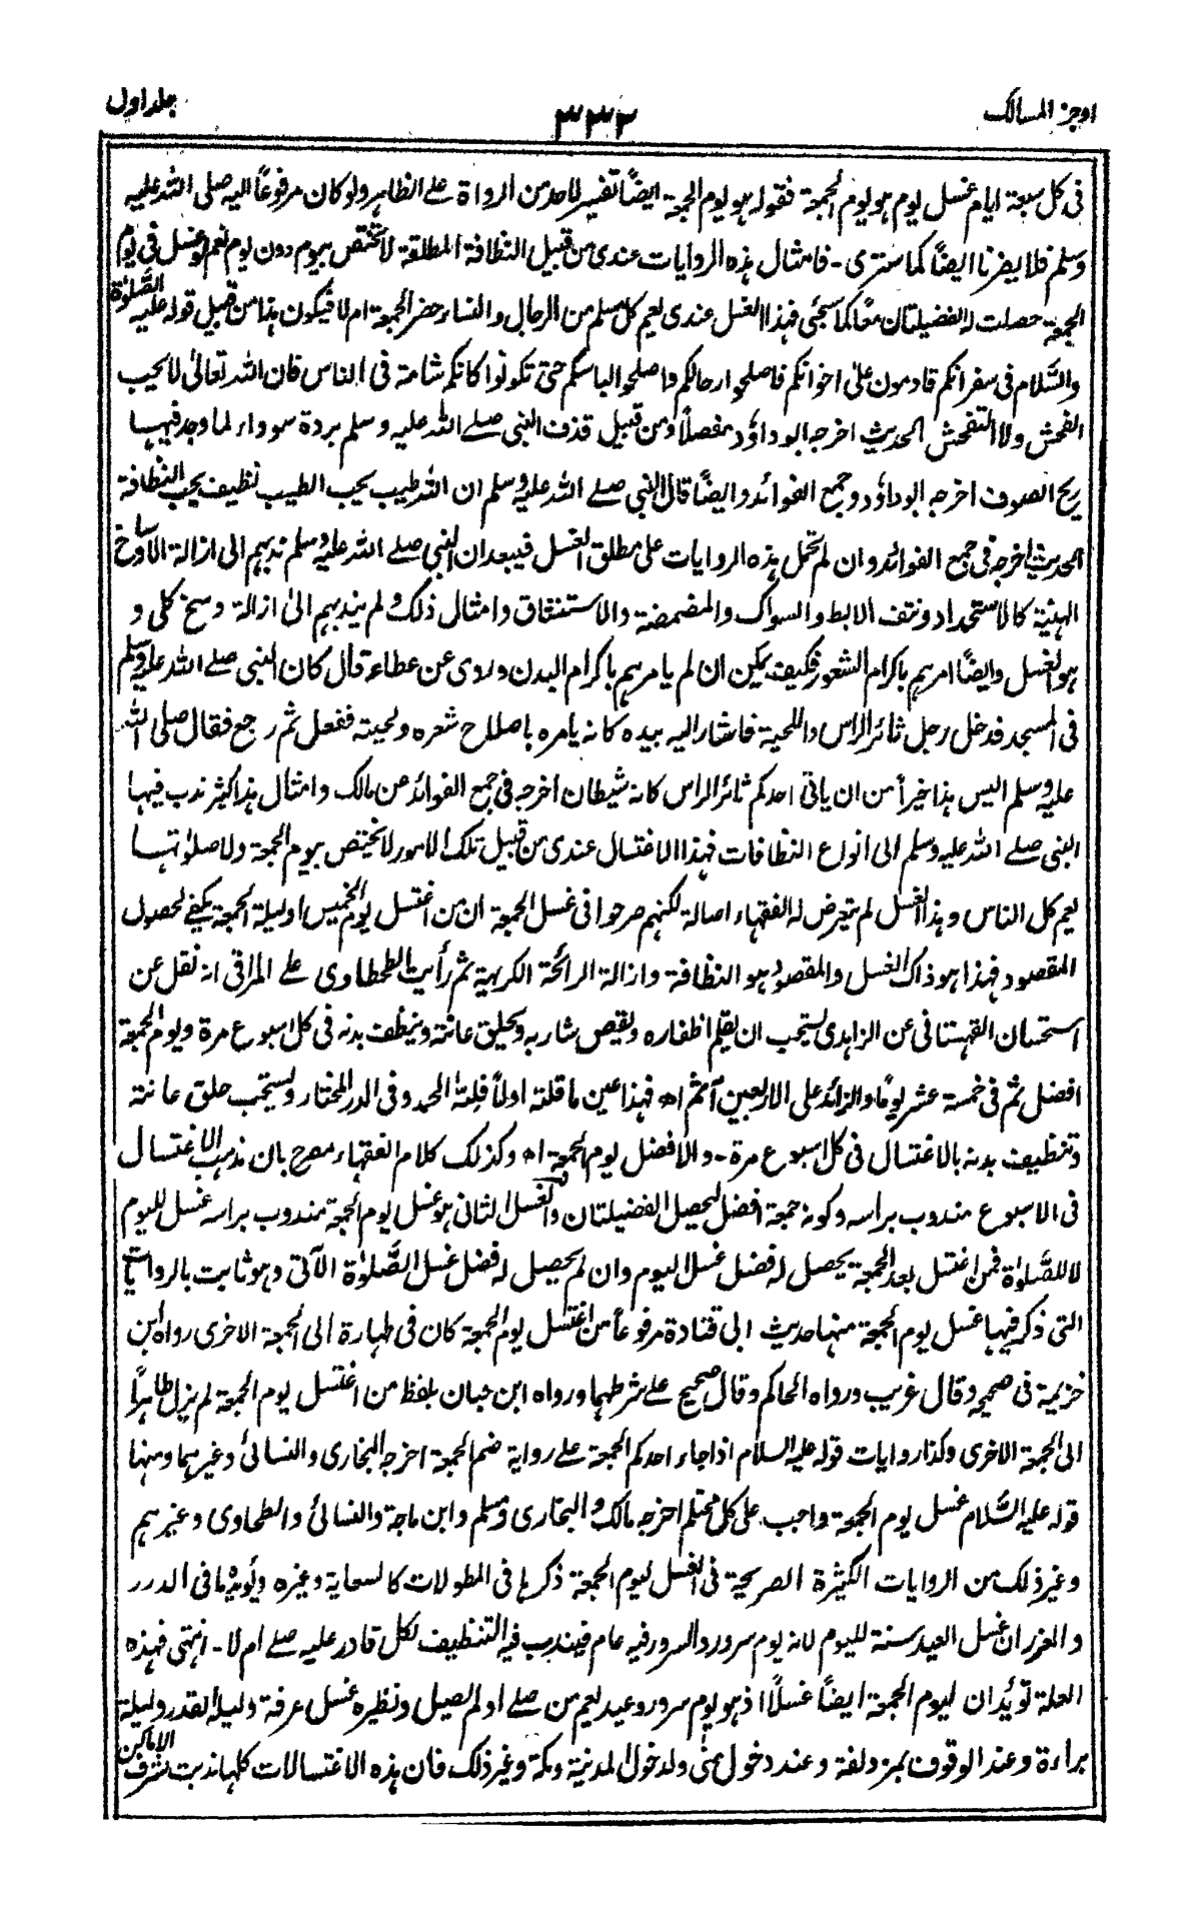 اوجز المسالك
٣٣٢
جلد اول
فى كل سبعة ايام غسل يوم هو يوم الجمعة فقوله هو يوم الجمعة ايضاً تفسير لاحد من الرواة على الظاهر ولو كان مرفوعاً اليه صلى الله عليه
وسلم فلا يضرنا ايضاً كما سترى - فامثال هذه الروايات عندى من قبيل النظافة المطلقة لا تختص بيوم دون يوم نعم لو غسل فى يوم
الجمعة حصلت له الفضيلتان معاً كما سيجئى فهذا الغسل عندى يعم كل مسلم من الرجال والنساء حضر الجمعة ام لا فيكون هذا من قبيل قوله عليه الصلوٰة
والسَّلام فى سفر انكم قادمون على اخوانكم فاصلحوا رحالكم واصلحوا الباسكم حتى تكونوا كانكم شامة فى الناس فان الله تعالىٰ لا يحب
الفحش ولا التفحش الحديث اخرجه ابو داؤد مفصلاً ومن قبيل قذف النبى صلے الله عليه وسلم بردة سوداء لما وجد فيها
ريح الصوف اخرجه ابو داؤد وجمع الفوائد وايضاً قال النبى صلے الله عليه وسلم ان الله طيب يحب الطيب نظيف يحب النظافة
الحديث اخرجه فى جمع الفوائد وان لم تحمل هذه الروايات على مطلق الغسل فيبعد ان النبى صلے الله عليه وسلم ندبهم الى ازالة الاوساخ
الهيئة كالاستحداد ونتف الابط والسواك والمضمضة والاستنشاق وامثال ذلك ولم يندبهم الىٰ ازالة وسخ كلى و
هو الغسل وايضاً امرهم باكرام الشعور فكيف يمكن ان لم يامرهم باكرام البدن وروى عن عطاء قال كان النبى صلے الله عليه وسلم
فى المسجد فدخل رجل ثائر الراس واللحية فاشار اليه بيده كانه يامره باصلاح شعره ولحيته ففعل ثم رجع فقال صلى الله
عليه وسلم اليس هذا خيراً من ان ياتى احدكم ثائر الراس كانه شيطان اخرجه فى جمع الفوائد عن مالك وامثال هذا كثير ندب فيها
النبى صلے الله عليه وسلم الى انواع النظافات فهذا الاغتسال عندى من قبيل تلك الامور لا يختص بيوم الجمعة ولا صلوٰتها
يعم كل الناس وهذا الغسل لم يتعرض له الفقهاء اصالة لكنهم صرحوا فى غسل الجمعة ان من اغتسل يوم الخميس او ليلة الجمعة يكفے لحصول
المقصود فهذا هو ذاك الغسل والمقصود هو النظافة وازالة الرائحة الكريهة ثم رأيت الطحطاوى علے المراقى انه نقل عن
استحسان القهستانى عن الزاهدى يستحب ان يقلم اظفاره ويقص شاربه ويحلق عانته وينظف بدنه فى كل اسبوع مرة ويوم الجمعة
افضل ثم فى خمسة عشر يوماً والزائد على الاربعين آثم اھ فهذا عين ما قلته اولاً فلله الحمد وفى الدر المختار ويستحب حلق عانته
وتنظيف بدنه بالاغتسال فى كل اسبوع مرة - والافضل يوم الجمعة اھ وكذلك كلام الفقهاء مصرح بان ندب الاغتسال
فى الاسبوع مندوب براسه وكونه جمعة افضل ليحصل الفضيلتان والغسل الثانى هو غسل يوم الجمعة مندوب براسه غسل لليوم
لا للصَّلوٰة فمن اغتسل بعد الجمعة يحصل له فضل غسل اليوم وان لم يحصل له فضل غسل الصَّلوٰة الآتى وهو ثابت بالروايات
التى ذكر فيها غسل يوم الجمعة منها حديث ابى قتادة مرفوعاً من اغتسل يوم الجمعة كان فى طهارة الى الجمعة الاخرى رواه ابن
خزيمة فى صحيحه وقال غريب ورواه الحاكم وقال صحيح علے شرطهما ورواه ابن حبان بلفظ من اغتسل يوم الجمعة لم يزل طاهراً
الى الجمعة الاخرى وكذا روايات قوله عليه السلام اذا جاء احدكم الجمعة علے رواية ضم الجمعة اخرجه البخارى والنسائى وغيرهما ومنها
قوله عليه السَّلام غسل يوم الجمعة واجب على كل محتلم اخرجه مالك والبخارى ومسلم وابن ماجة والنسائى والطحاوى وغيرهم
وغير ذلك من الروايات الكثيرة الصريحة فى الغسل ليوم الجمعة ذكرها فى المطولات كالسعاية وغيره ويُؤيده ما فى الدرر
والغرر ان غسل العيد سنة لليوم لانه يوم سرور والسرور فيه عام فيندب فيه التنظيف لكل قادر عليه صلے ام لا - انتهى فهذه
العلة تؤيد ان ليوم الجمعة ايضاً غسلاً اذ هو يوم سرور وعيد يعم من صلے او لم يصل ونظيره غسل عرفة وليلة القدر وليلة
براءة وعند الوقوف بمزدلفة وعند دخول منىٰ ولدخول المدينة ومكة وغير ذلك فان هذه الاغتسالات كلها ندبت لشرف الاماكن